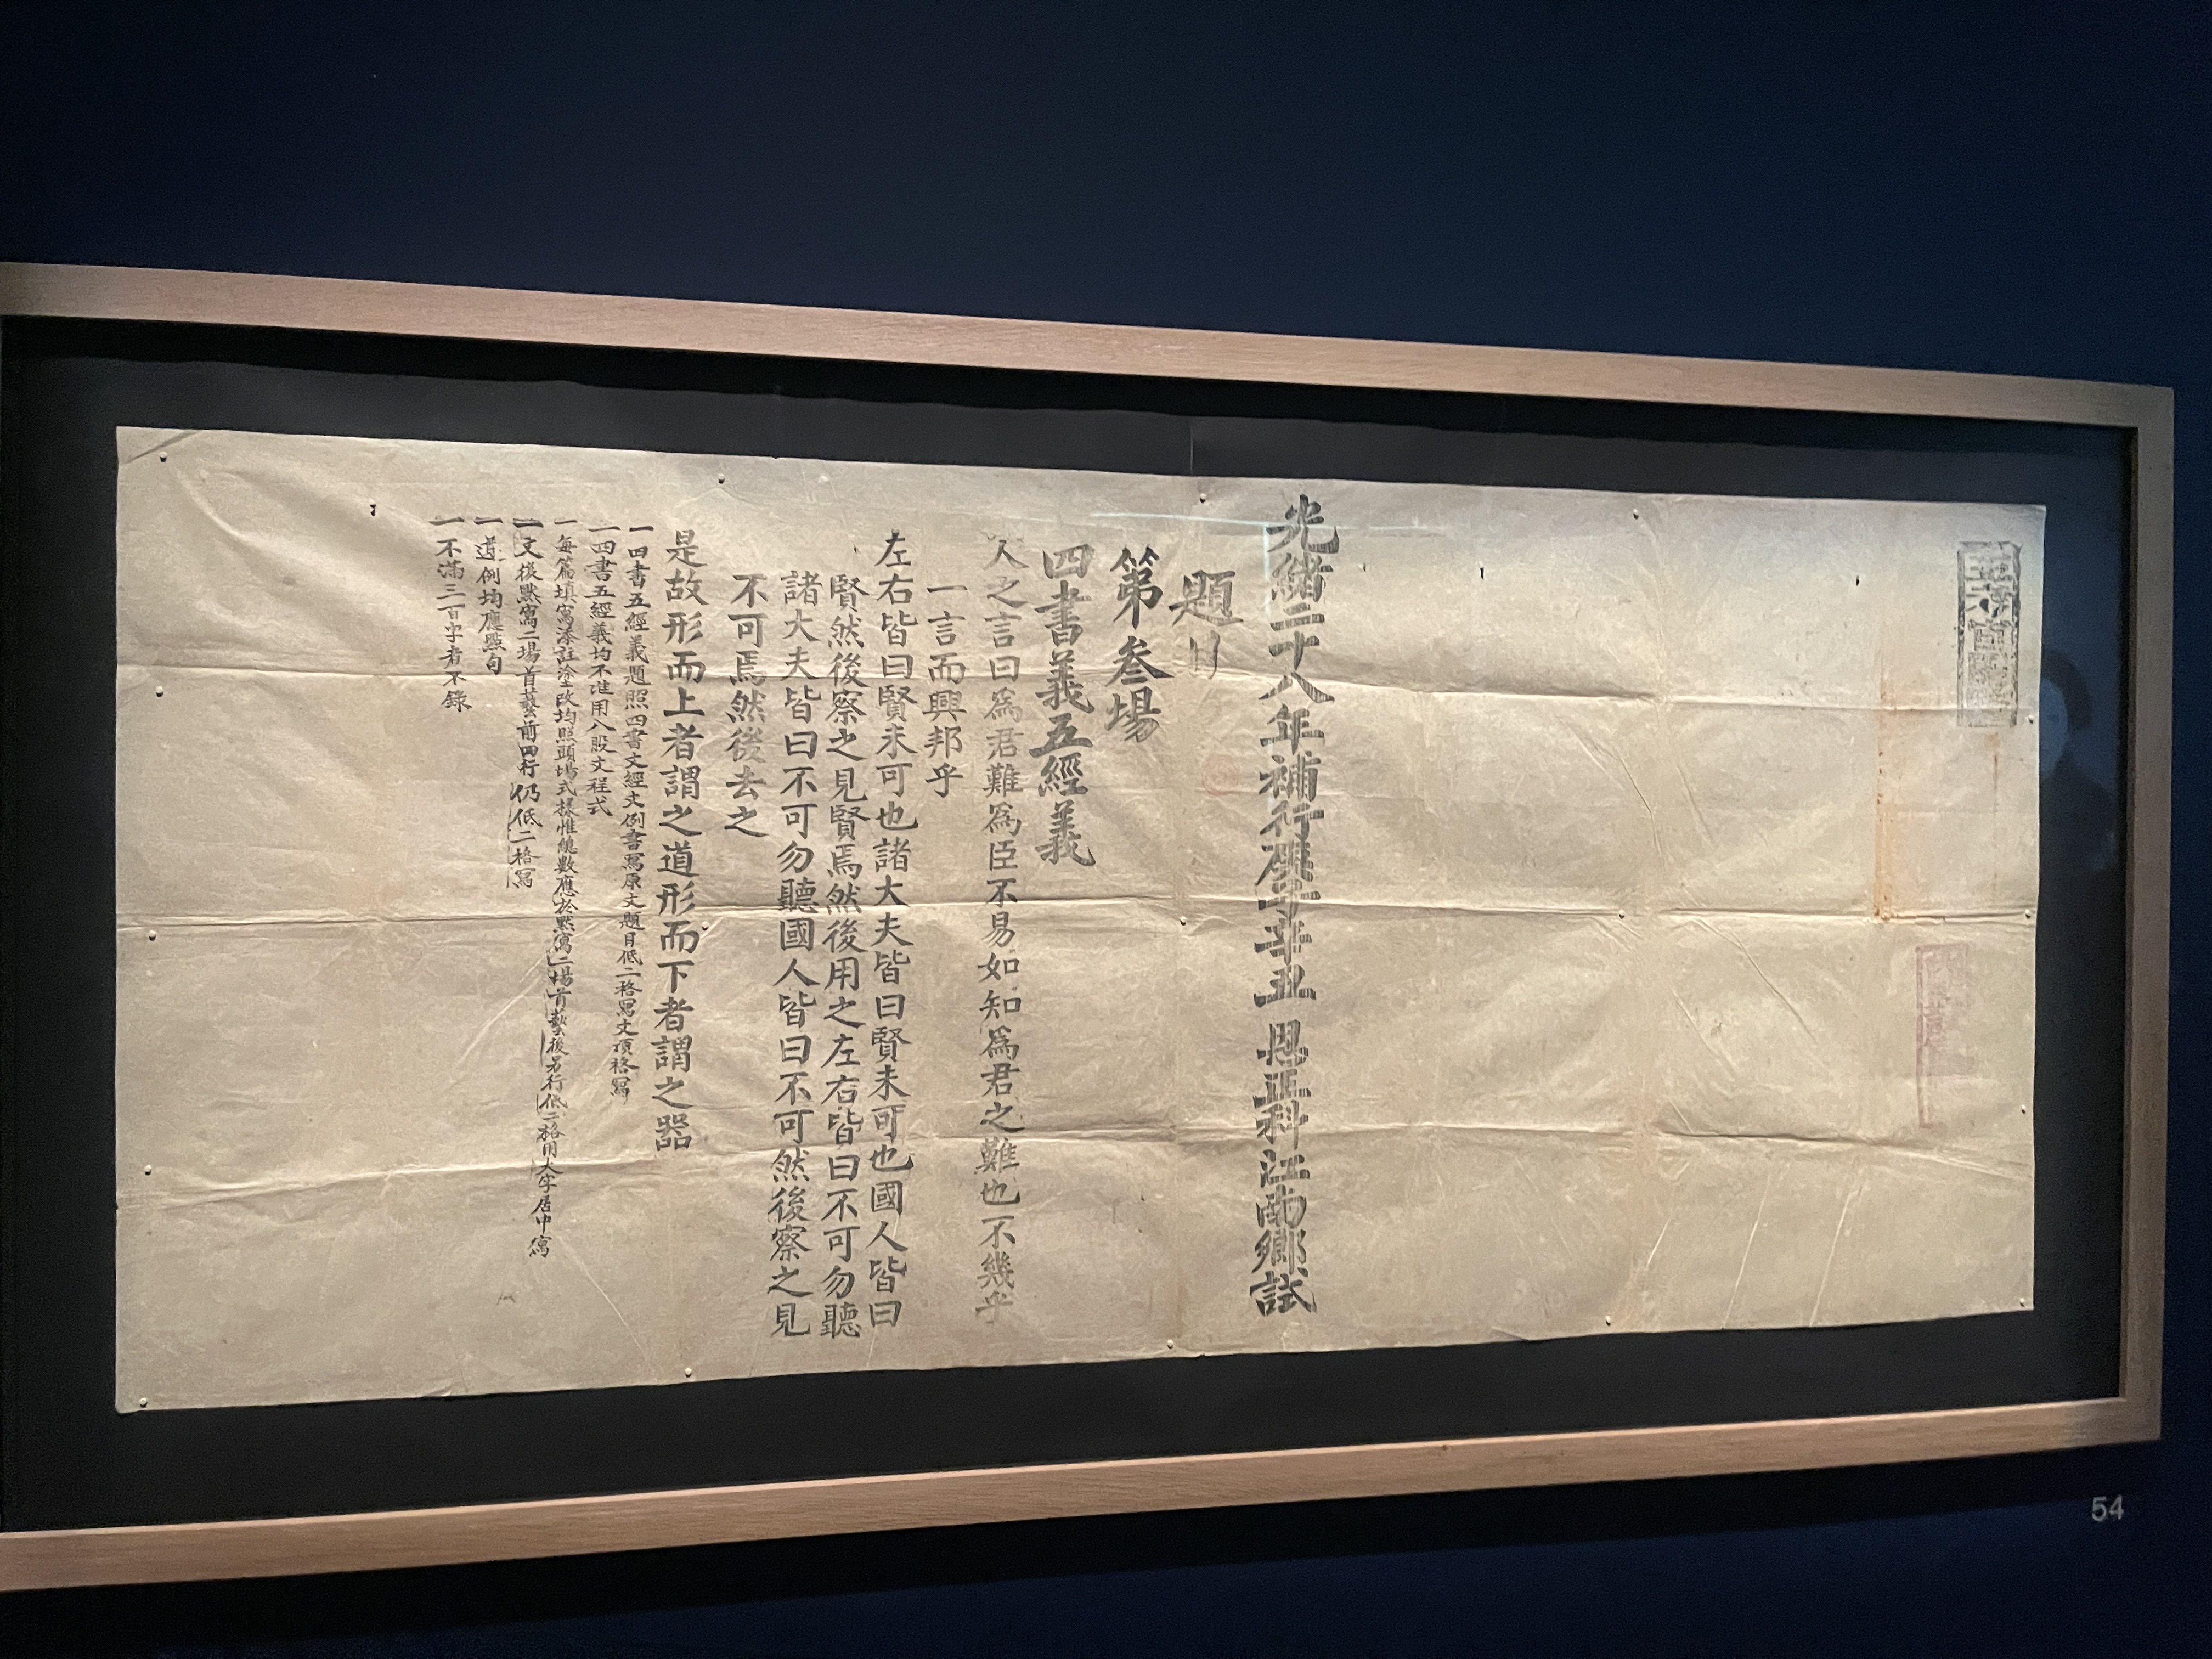 光緒二十八年補行庚子辛丑 恩正科江南鄉試
題目
第叁場
四書義五經義
人之言曰爲君難爲臣不易如知爲君之難也不幾乎
一言而興邦乎
左右皆曰賢未可也諸大夫皆曰賢未可也國人皆曰
賢然後察之見賢焉然後用之左右皆曰不可勿聽
諸大夫皆曰不可勿聽國人皆曰不可然後察之見
不可焉然後去之
是故形而上者謂之道形而下者謂之器
一四書五經義題照四書文經文例書寫原文題目低二格寫文頂格寫
一四書五經義均不准用八股文程式
一每篇填寫添註塗改均照頭場式樣惟總數應於默寫二場首藝後另行低二格用大字居中寫
一文後默寫二場首藝前四行仍低二格寫
一遵例均應點句
一不滿三百字者不錄
54